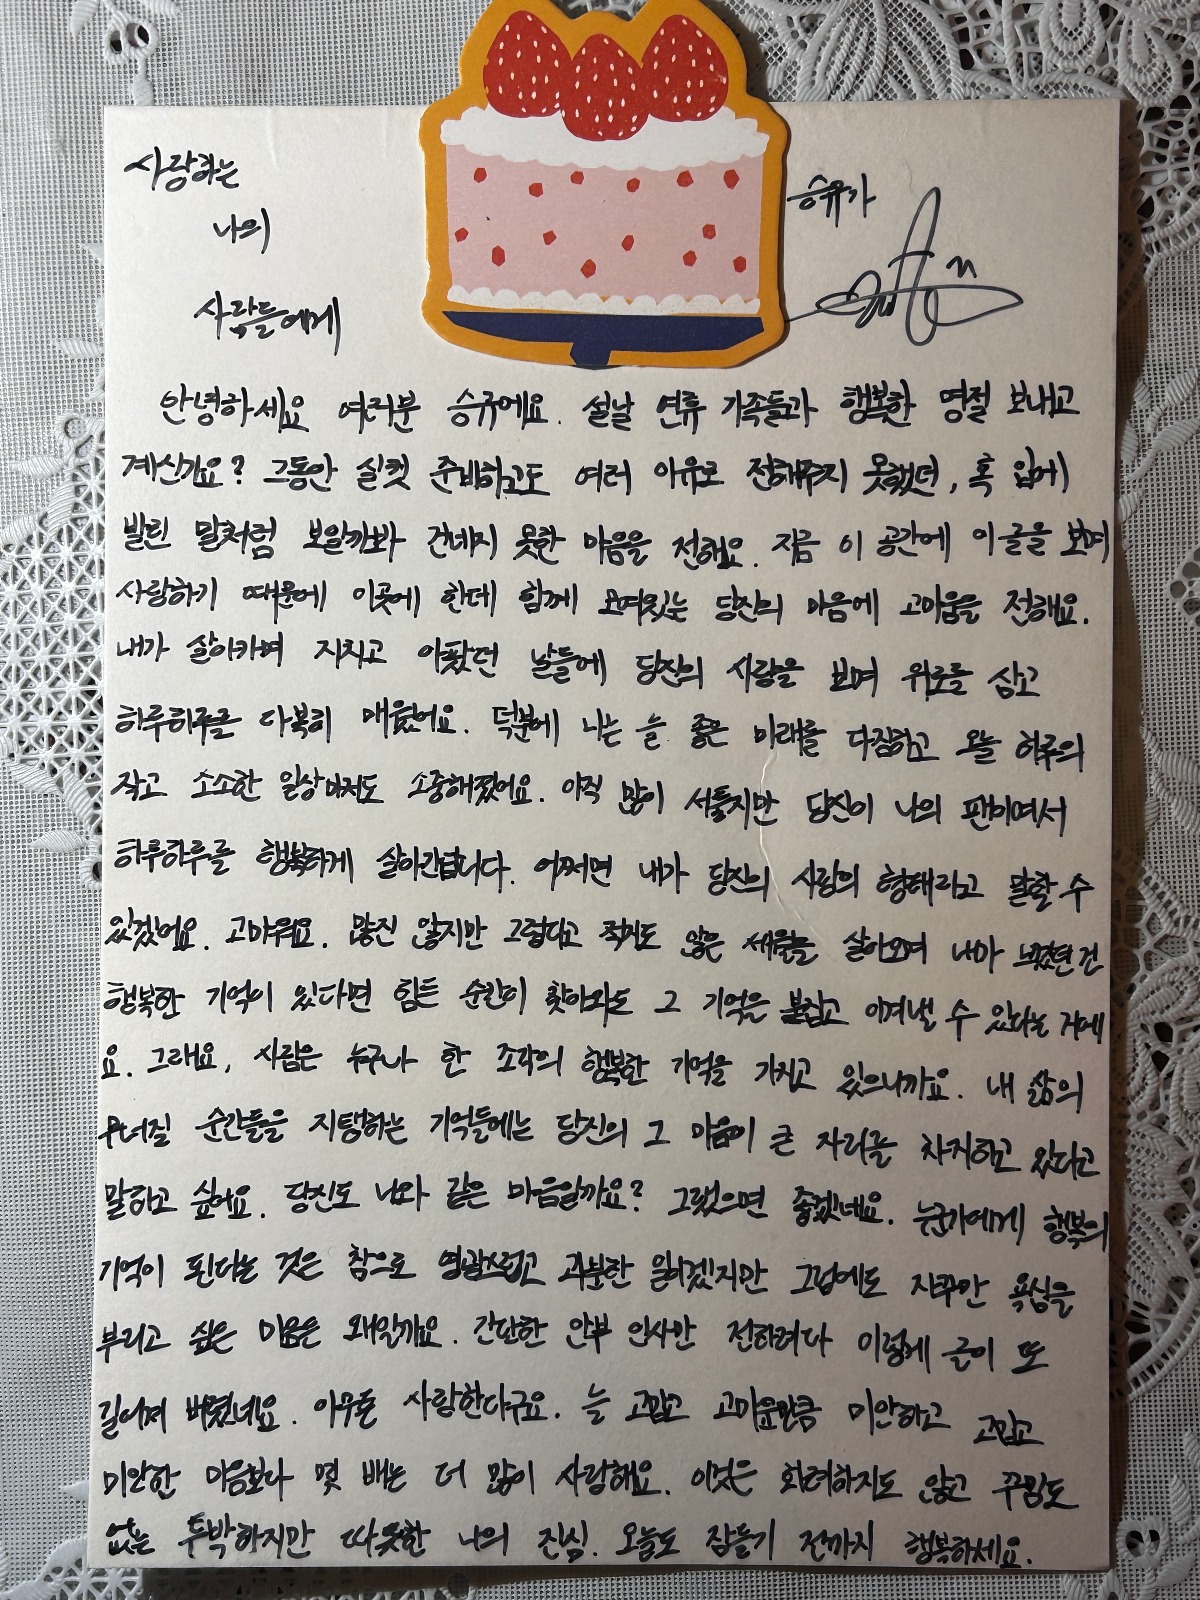 사랑하는
나의
사람들에게
승규가
안녕하세요 여러분 승규에요. 설날 연휴 가족들과 행복한 명절 보내고
계신가요? 그동안 실컷 준비하고도 여러 이유로 전해주지 못했던, 혹 입에
발린 말처럼 보일까봐 건네지 못한 마음을 전해요. 지금 이 공간에 이 글을 보며
사랑하기 때문에 이곳에 한데 함께 모여있는 당신의 마음에 고마움을 전해요.
내가 살아가며 지치고 아팠던 날들에 당신의 사랑을 보며 위로를 삼고
하루하루를 다복히 매웠어요. 덕분에 나는 늘 좋은 미래를 다짐하고 오늘 하루의
작고 소소한 일상마저도 소중해졌어요. 아직 많이 서툴지만 당신이 나의 팬이여서
하루하루를 행복하게 살아간답니다. 어쩌면 내가 당신의 사랑의 형태라고 말할 수
있겠어요. 고마워요. 많진 않지만 그렇다고 적지도 않은 세월을 살아오며 내가 느꼈던 건
행복한 기억이 있다면 힘든 순간이 찾아와도 그 기억을 붙잡고 이겨낼 수 있다는 거에
요. 그래요, 사람은 누구나 한 조각의 행복한 기억을 가지고 있으니까요. 내 삶의
무너질 순간들을 지탱하는 기억들에는 당신의 그 마음이 큰 자리를 차지하고 있다고
말하고 싶어요. 당신도 나와 같은 마음일까요? 그랬으면 좋겠네요. 누군가에게 행복의
기억이 된다는 것은 참으로 영광스럽고 과분한 일이겠지만 그럼에도 자꾸만 욕심을
부리고 싶은 마음은 왜일까요. 간단한 안부 인사만 전하려다 이렇게 글이 또
길어져 버렸네요. 아무튼 사랑한다구요. 늘 고맙고 고마운만큼 미안하고 고맙고
미안한 마음보다 몇 배는 더 많이 사랑해요. 이것은 화려하지도 않고 꾸밈도
없는 투박하지만 따뜻한 나의 진심. 오늘도 잠들기 전까지 행복하세요.